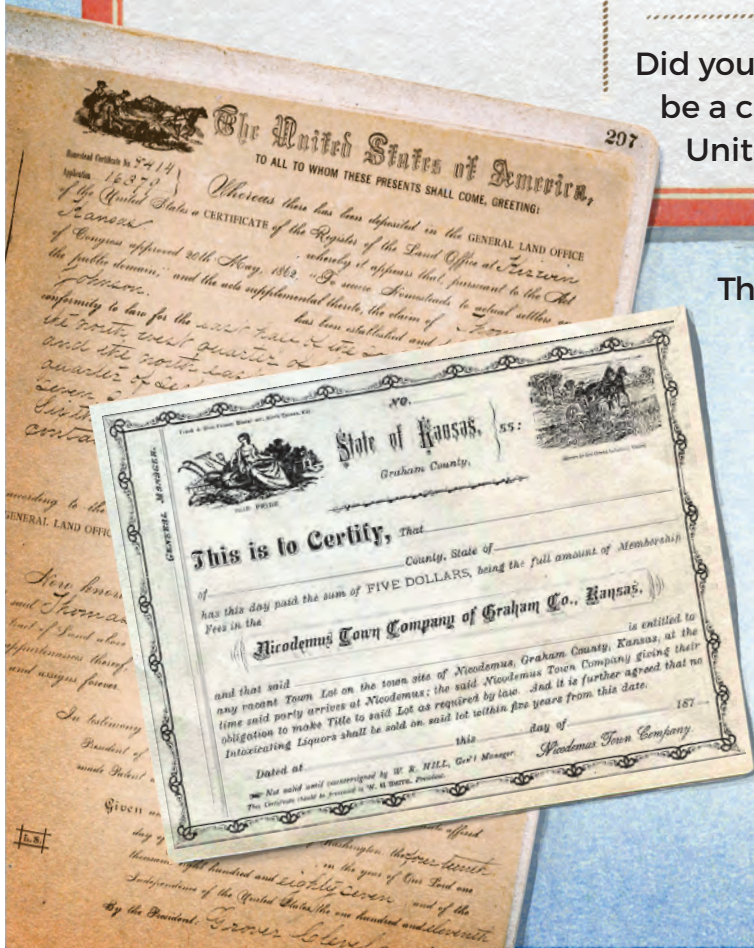 Did you
be a c
Unit
Th
297
The United States of America,
TO ALL TO WHOM THESE PRESENTS SHALL COME, GREETING:
Homestead Certificate No. 9414
Application 16278
Whereas there has been deposited in the GENERAL LAND OFFICE
of the United States a CERTIFICATE of the Register of the Land Office at Kirwin
Kansas, whereby it appears that, pursuant to the Act
of Congress approved 20th May, 1862, "To secure Homesteads to actual settlers
the public domain," and the acts supplemental thereto, the claim of
Johnson. has been established and
conformity to law for the east half of the
the north west quarter of
and the north ea
quarter of Sec
Seven
conta
according to the
GENERAL LAND OFFIC
Now know
said Thomas
tract of Land above
appurtenances thereof
and assigns forever
In testimony
President of
made Patent
L.S.
Given un
day of Washington, the fourteenth
thousand eight hundred and eighty seven and of the
in the year of Our Lord one
Independence of the United States the one hundred and eleventh
By the President: Grover Clevel
GENERAL MANAGER.
NO.
State of Kansas, ss:
Graham County,
This is to Certify, That
of County, State of
has this day paid the sum of FIVE DOLLARS, being the full amount of Membership
Fees in the
Nicodemus Town Company of Graham Co., Kansas,
and that said is entitled to
any vacant Town Lot on the town site of Nicodemus, Graham County, Kansas, at the
time said party arrives at Nicodemus; the said Nicodemus Town Company giving their
obligation to make Title to said Lot as required by law. And it is further agreed that no
Intoxicating Liquors shall be sold on said lot within five years from this date.
Dated at this day of 187
Nicodemus Town Company
Not valid until countersigned by W. R. HILL, Gen'l Manager.
This Certificate should be presented to W. H. Smith, President.